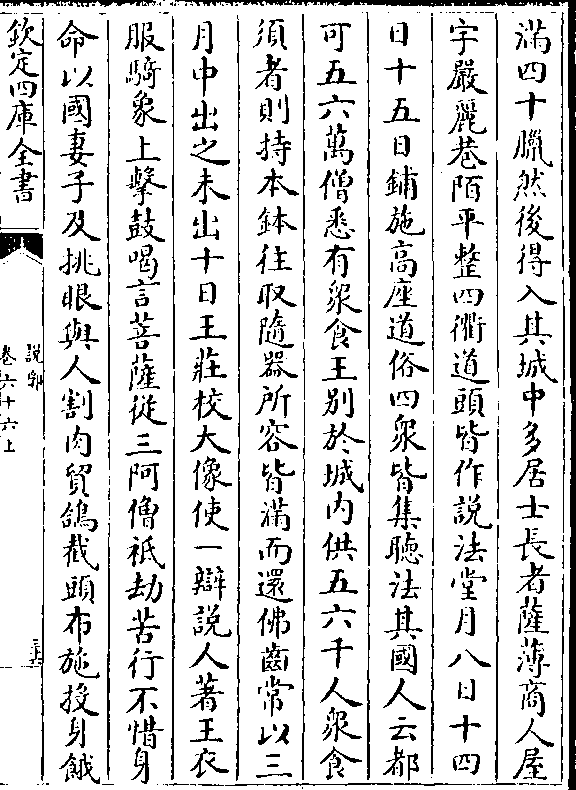 滿四十臘然後得入其城中多居士長者薩薄商人屋
宇嚴麗巷陌平整四衢道頭皆作説法堂月八日十四
日十五日鋪施高座道俗四衆皆集聴法其國人云都
可五六萬僧悉有衆食王别於城内供五六千人衆食
須者則持本鉢往取隨器所容皆滿而還佛齒常以三
月中出之未出十日王莊校大像使一辯説人著王衣
服騎象上擊鼓喝言菩薩從三阿僧祇劫苦行不惜身
命以國妻子及挑眼與人割肉貿鴿截頭布施投身餓
欽定四庫全書
説郛
卷六十六上